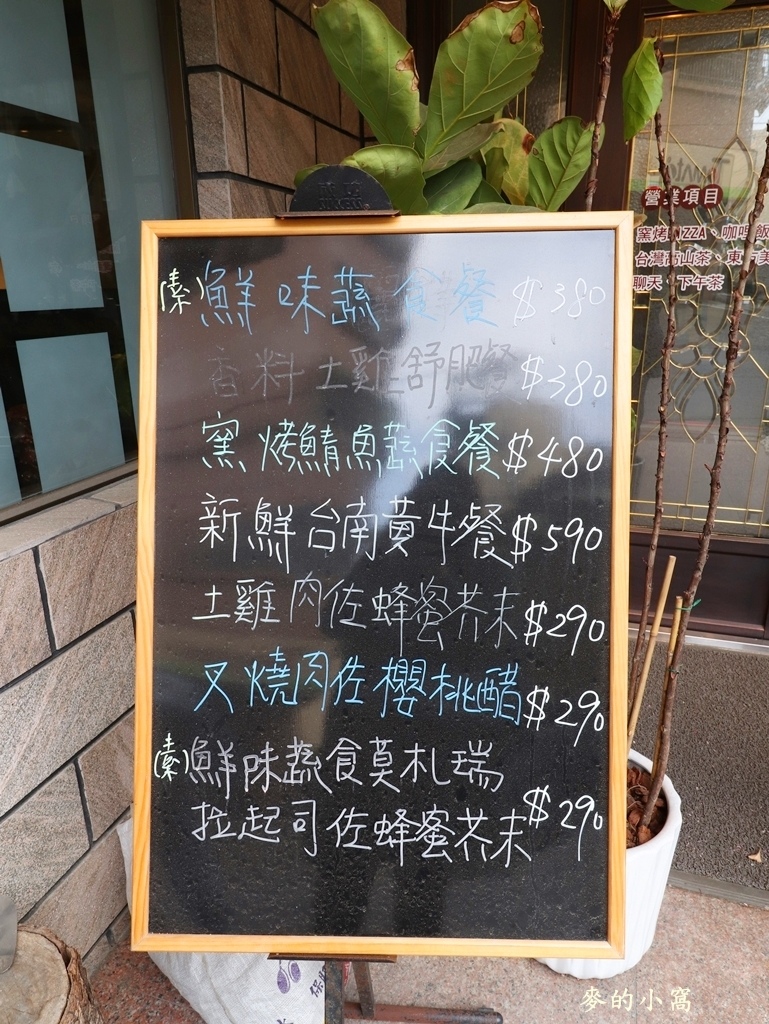 (素)鮮味蔬食餐 $380
香料土雞舒肥餐 $380
窯烤鯖魚蔬食餐 $480
新鮮台南黃牛餐 $590
土雞肉佐蜂蜜芥末 $290
叉燒肉佐櫻桃醋 $290
(素)鮮味蔬食莫札瑞
拉起司佐蜂蜜芥末 $290
營業項目
窯烤PIZZA、咖啡飯
台灣高山茶、東方美
聊天、下午茶
麥的小窩